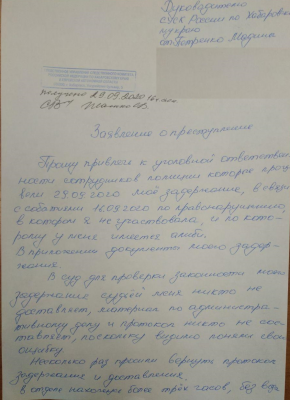 Руководителю
СУСК России по Хабаровск
краю
от Петренко
получено 29.09.2020
Заявление о преступлении
Прошу привлечь к уголовной ответствен
ности сотрудников полиции которые прои
вели 29.09.2020 моё задержание, в связи
с событиями 12.09.2020 по правонарушению,
в котором я не участвовала, и по кото-
рому у меня имеется алиби.
В приложении документы моего задер-
жания.
В суд для проверки законности моего
задержание судьёй меня никто не
доставляет, материал по администра-
тивному делу и протокол никто не сос-
тавляет, поскольку видимо поняли свою
ошибку.
Несколько раз просила вернуть протокол
задержание и доставление.
в отделе нахожусь более трёх часов, без воды